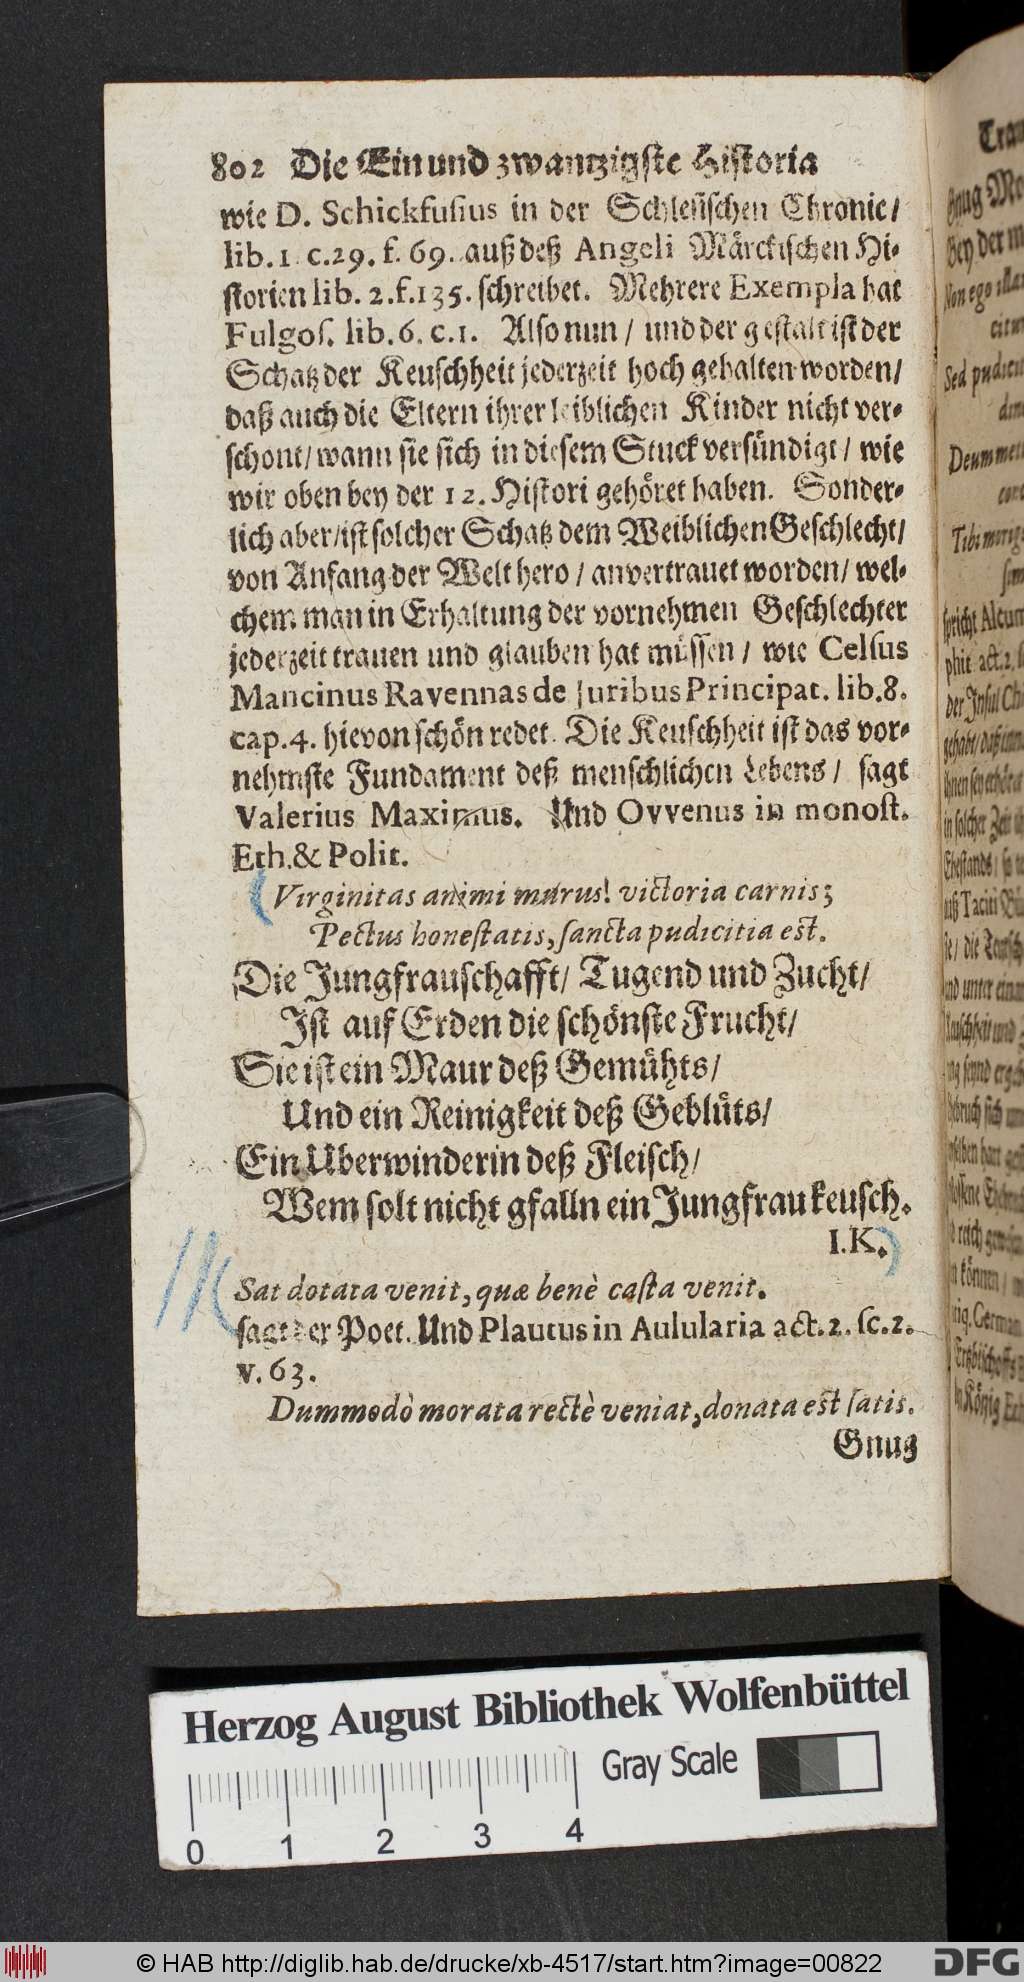 802 Die Ein und zwantzigste Historia
wie D. Schickfusius in der Schlesischen Chronic/
lib. 1. c. 29. f. 69. auß deß Angeli Märckischen Hi-
storien lib. 2. f. 135. schreibet. Mehrere Exempla hat
Fulgos. lib. 6. c. 1. Also nun / und der gestalt ist der
Schatz der Keuschheit jederzeit hoch gehalten worden/
daß auch die Eltern ihrer leiblichen Kinder nicht ver-
schont/ wann sie sich in diesem Stuck versündigt / wie
wir oben bey der 12. Histori gehöret haben. Sonder-
lich aber/ ist solcher Schatz dem Weiblichen Geschlecht/
von Anfang der Welt hero / anvertrauet worden/ wel-
chem man in Erhaltung der vornehmen Geschlechter
jederzeit trauen und glauben hat müssen / wie Celsus
Mancinus Ravennas de Juribus Principat. lib. 8.
cap. 4. hievon schön redet. Die Keuschheit ist das vor-
nehmste Fundament deß menschlichen Lebens / sagt
Valerius Maximus. Und Ovvenus in monost.
Eth. & Polit.
Virginitas animi murus! victoria carnis;
Pectus honestatis, sancta pudicitia est.
Die Jungfrauschafft/ Tugend und Zucht/
Ist auf Erden die schönste Frucht/
Sie ist ein Maur deß Gemühts/
Und ein Reinigkeit deß Geblüts/
Ein Uberwinderin deß Fleisch/
Wem solt nicht gfalln ein Jungfrau keusch.
I. K.
Sat dotata venit, quæ benè casta venit.
sagt der Poet. Und Plautus in Aulularia act. 2. sc. 2.
v. 63.
Dummodò morata rectè veniat, donata est satis.
Gnug
Herzog August Bibliothek Wolfenbüttel
Gray Scale
0 1 2 3 4
© HAB http://diglib.hab.de/drucke/xb-4517/start.htm?image=00822
DFG